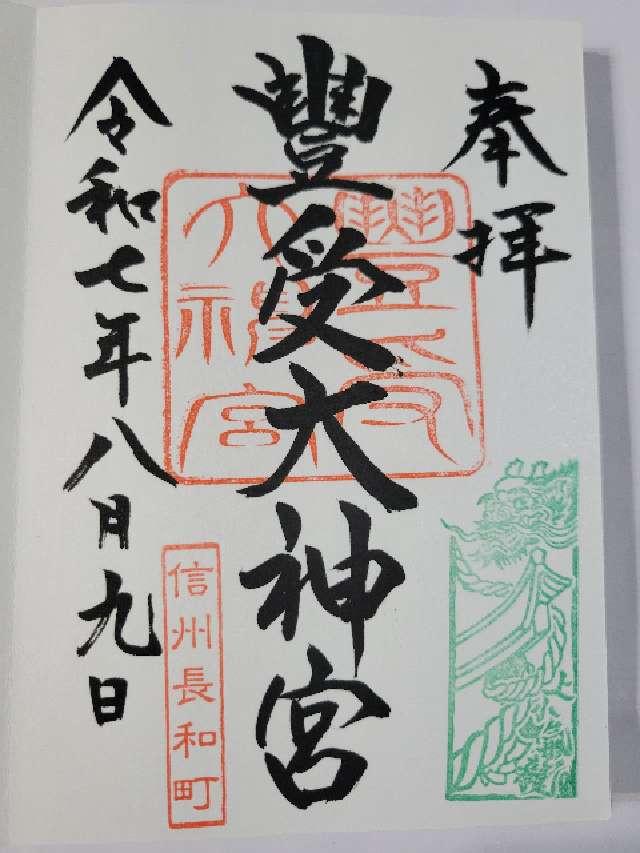 奉拝
豐受大神宮
豐受
大神宮
令和七年八月九日
信州長和町